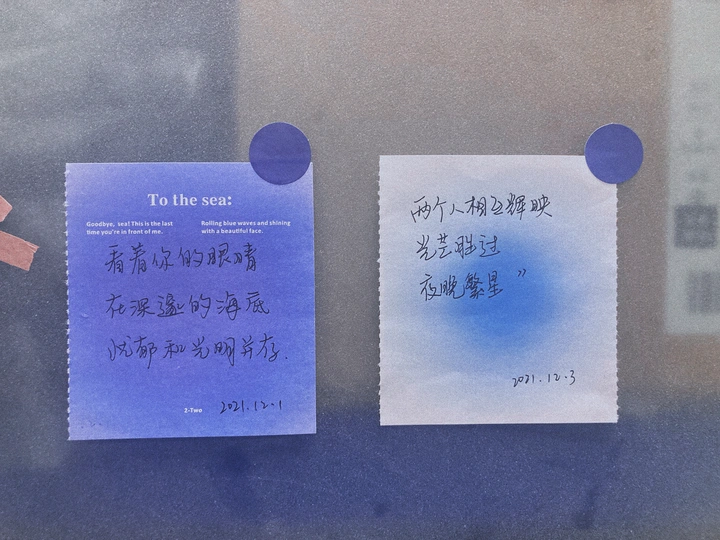 To the sea:
Goodbye, sea! This is the last
time you're in front of me.
Rolling blue waves and shining
with a beautiful face.
看着你的眼睛
在深邃的海底
忧郁和光明并存.
2-Two
2021.12.1
两个人相互辉映
光芒胜过
夜晚繁星”
2021.12.3